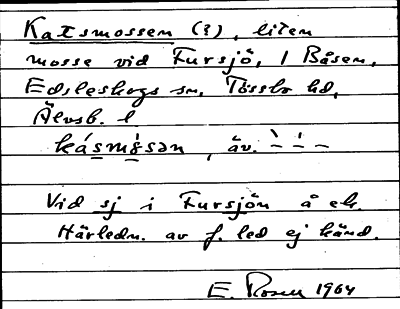 Katsmossen (?), liten
mosse vid Fursjö, 1 Båsen,
Edsleskogs sn, Tössbo hd,
Älvsb. l
kásmòsən, äv. ` ´ –
Vid sj i Fursjön å ek.
Härledn. av f. led ej känd.
E. Rosen 1964